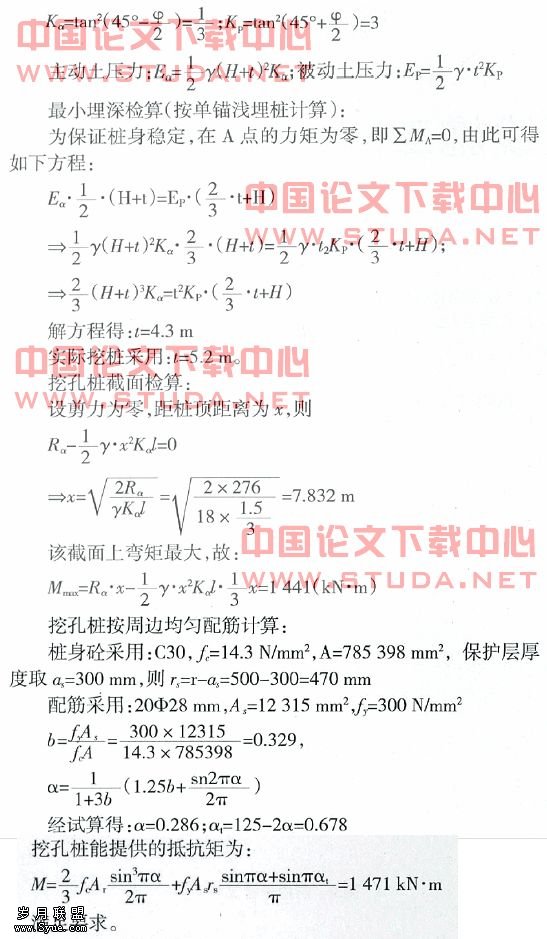 Kα=tan²(45°-φ/2)=1/3;Kp=tan²(45°+φ/2)=3
中国论文下载中心
WWW.STUDA.NET
主动土压力:Eα=1/2 γ(H+t)²Kα;被动土压力:EP=1/2 γ·t²KP
最小埋深检算(按单锚浅埋桩计算):
为保证桩身稳定,在 A 点的力矩为零,即∑MA=0,由此可得
如下方程:
Eα·1/2·(H+t)=EP·(2/3·t+H)
中国论文下载中心
WWW.STUDA.NET
⇒1/2 γ(H+t)²Kα·2/3·(H+t)=1/2 γ·t₂KP·(2/3·t+H);
⇒2/3(H+t)³Kα=t²KP·(2/3·t+H)
解方程得:t=4.3 m
中国论文下载中心
实际挖桩采用:t=5.2 m。
WWW.STUDA.NET
挖孔桩截面检算:
设剪力为零,距桩顶距离为 x,则
Rα-1/2 γ·x²Kαl=0
⇒x=√(2Rα/γKαl)=√(2×276/(18×1.5/3))=7.832 m
中国论文下载中心
该截面上弯矩最大,故:
WWW.STUDA.NET
Mmax=Rα·x-1/2 γ·x²Kαl·1/3 x=1 441(kN·m)
挖孔桩按周边均匀配筋计算:
桩身砼采用:C30, fc=14.3 N/mm²,A=785 398 mm², 保护层厚
度取 as=300 mm,则 rs=r-as=500-300=470 mm
配筋采用:20Φ28 mm,As=12 315 mm²,fy=300 N/mm²
b=fyAs/fcA=300×12315/14.3×785398=0.329,
α=1/1+3b(1.25b+sn2πα/2π)
经试算得:α=0.286;αt=125-2α=0.678
挖孔桩能提供的抵抗矩为:
M=2/3 fcAr sin³πα/2π+fyAsrs sinπα+sinπαt/π=1 471 kN·m
岁月联盟
www.Syue.com
求。